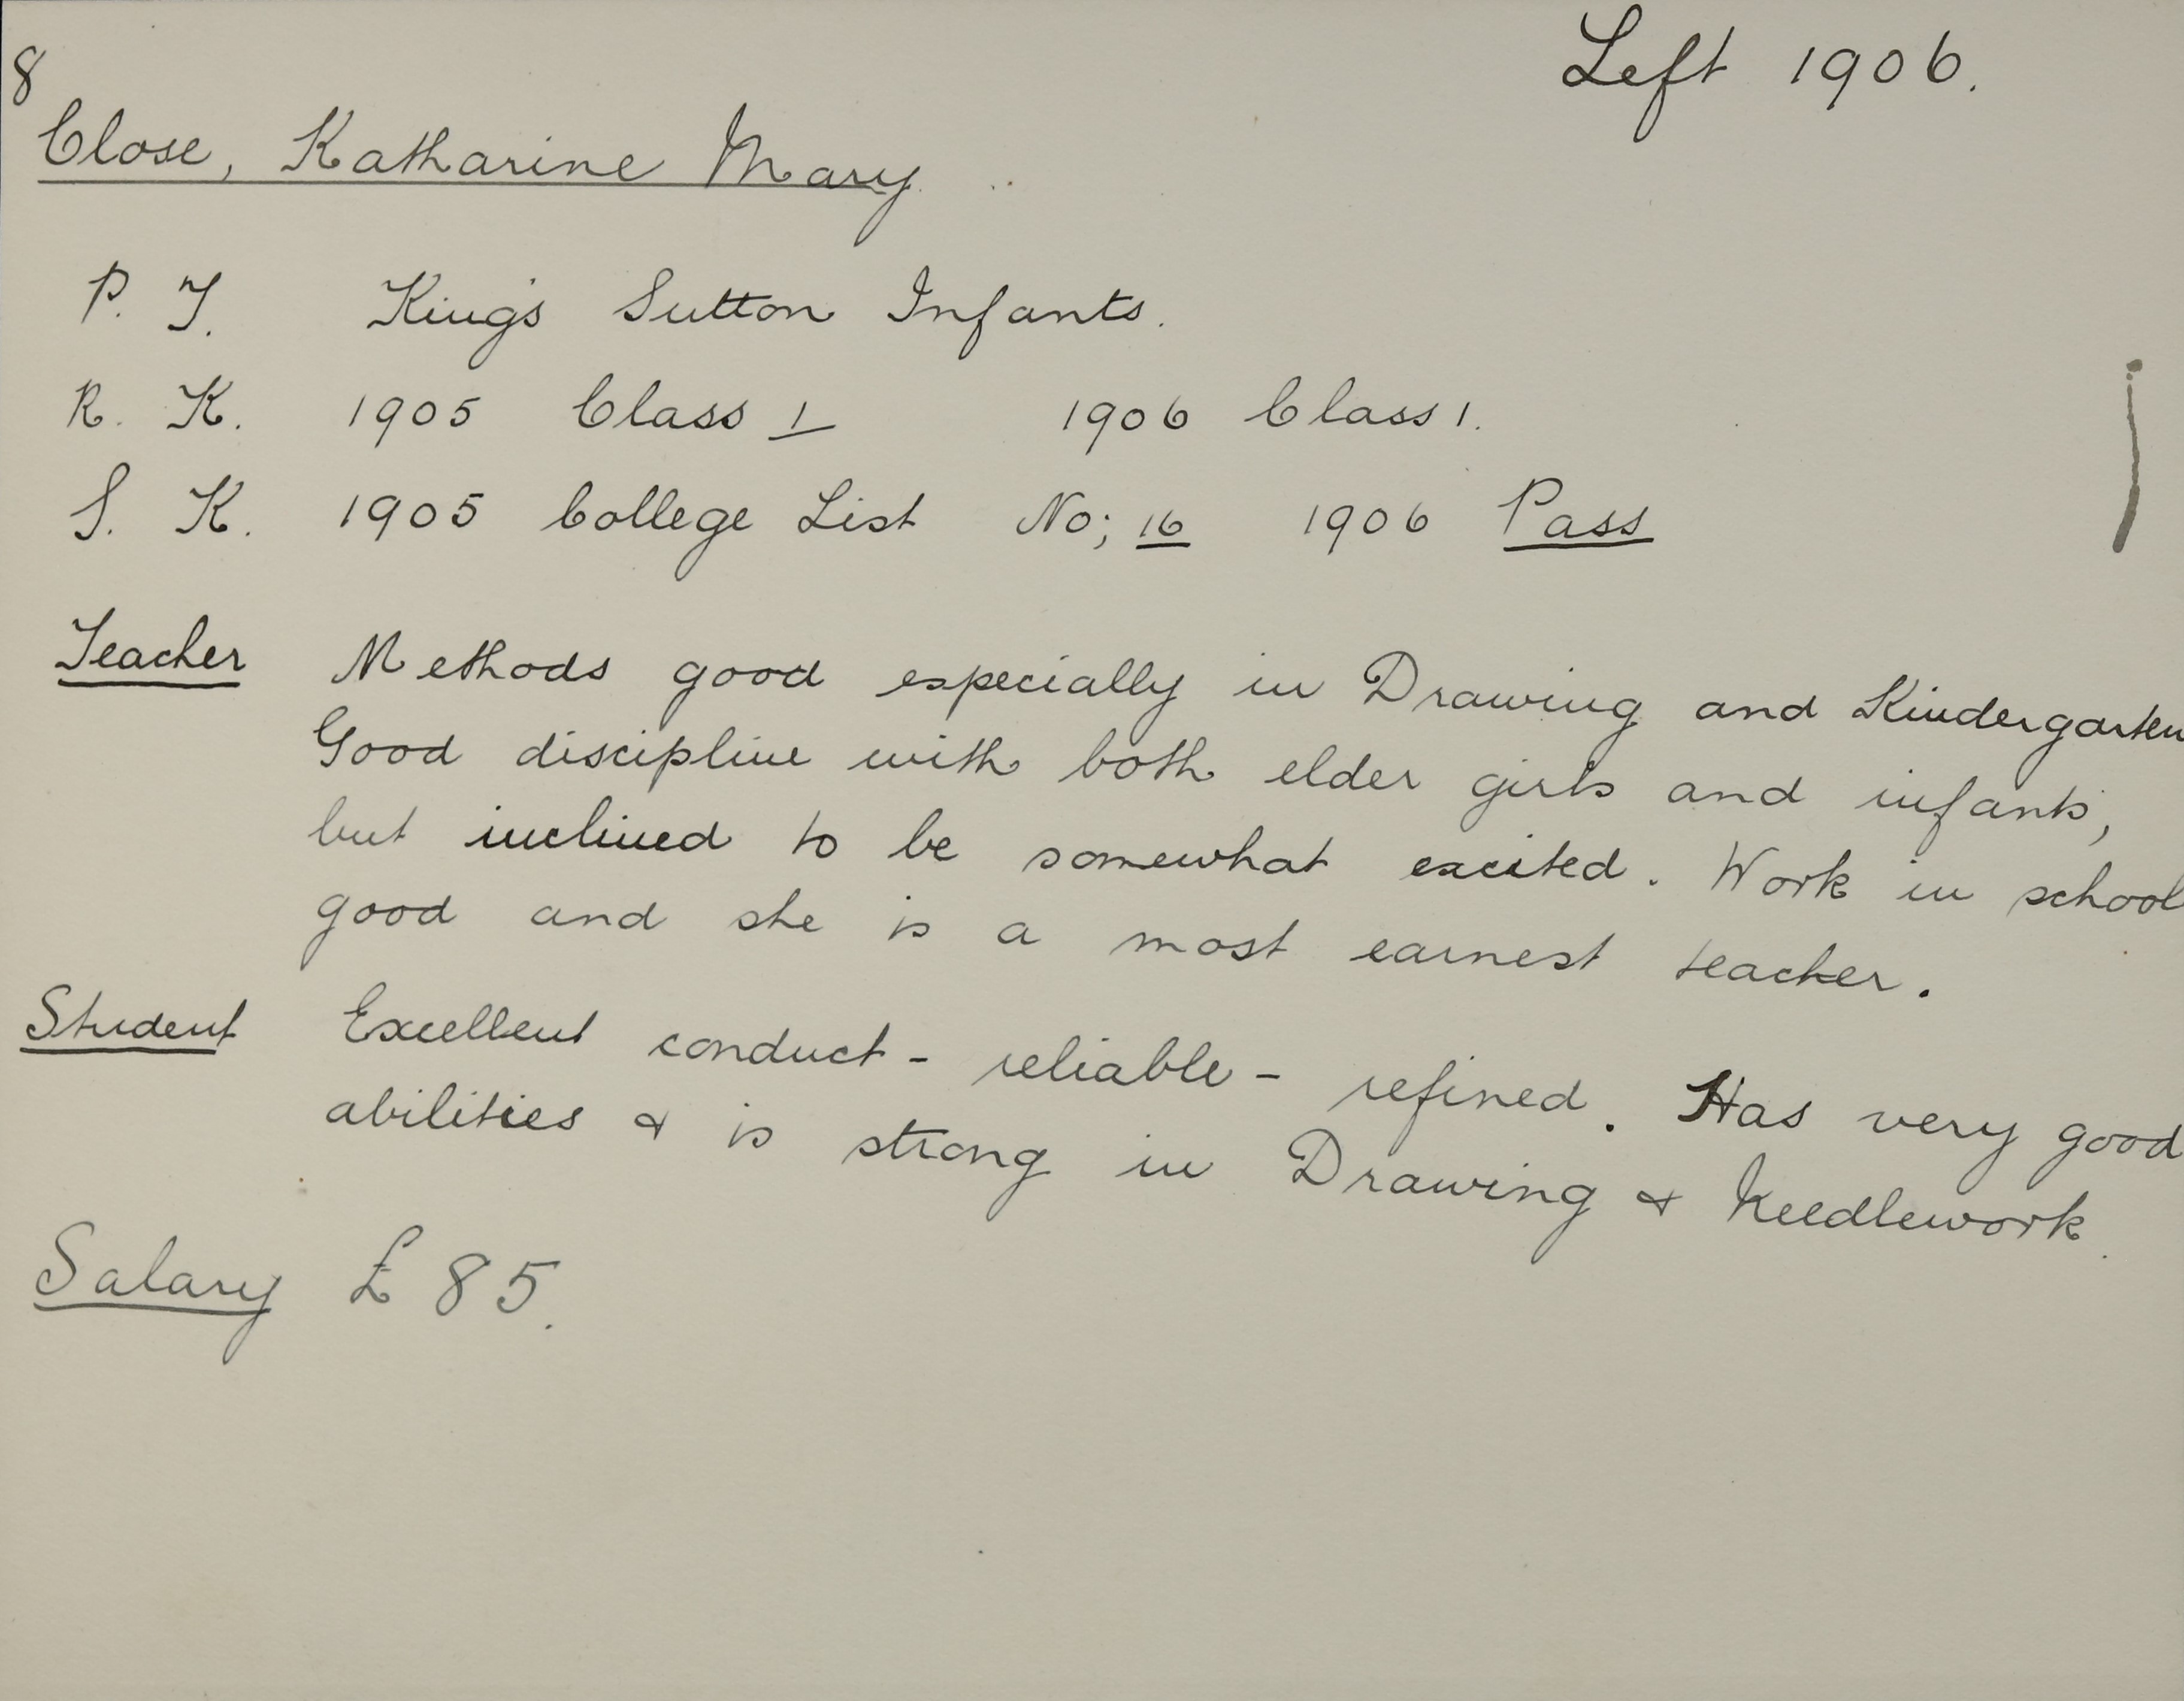 8
Left 1906.
Close, Katharine Mary.
P. T. King's Sutton Infants.
R. K. 1905 Class 1 1906 Class 1.
S. K. 1905 College List No; 16 1906 Pass
Teacher Methods good especially in Drawing and Kindergarten
Good discipline with both elder girls and infants,
but inclined to be somewhat excited. Work in school
good and she is a most earnest teacher.
Student Excellent conduct - reliable - refined. Has very good
abilities & is strong in Drawing & Needlework.
Salary £85.